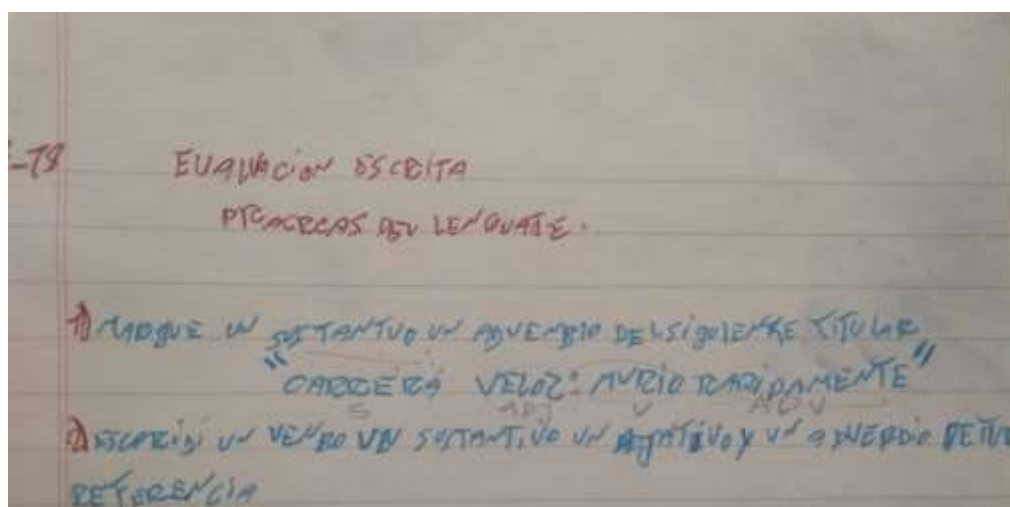 EVALUACION ESCRITA
DEL LENGUAJE.
1) MARQUE UN SUSTANTIVO UN ADVERBIO DEL SIGUIENTE TITULAR
"CARRERA VELOZ: MURIO RAPIDAMENTE"
S ADJ V ADV
2) UN VERBO UN SUSTANTIVO UN ADJETIVO Y UN ADVERBIO DE TU
REFERENCIA